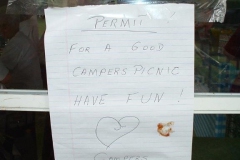 PERMIT
FOR A GOOD
CAMPERS PICNIC
HAVE FUN !